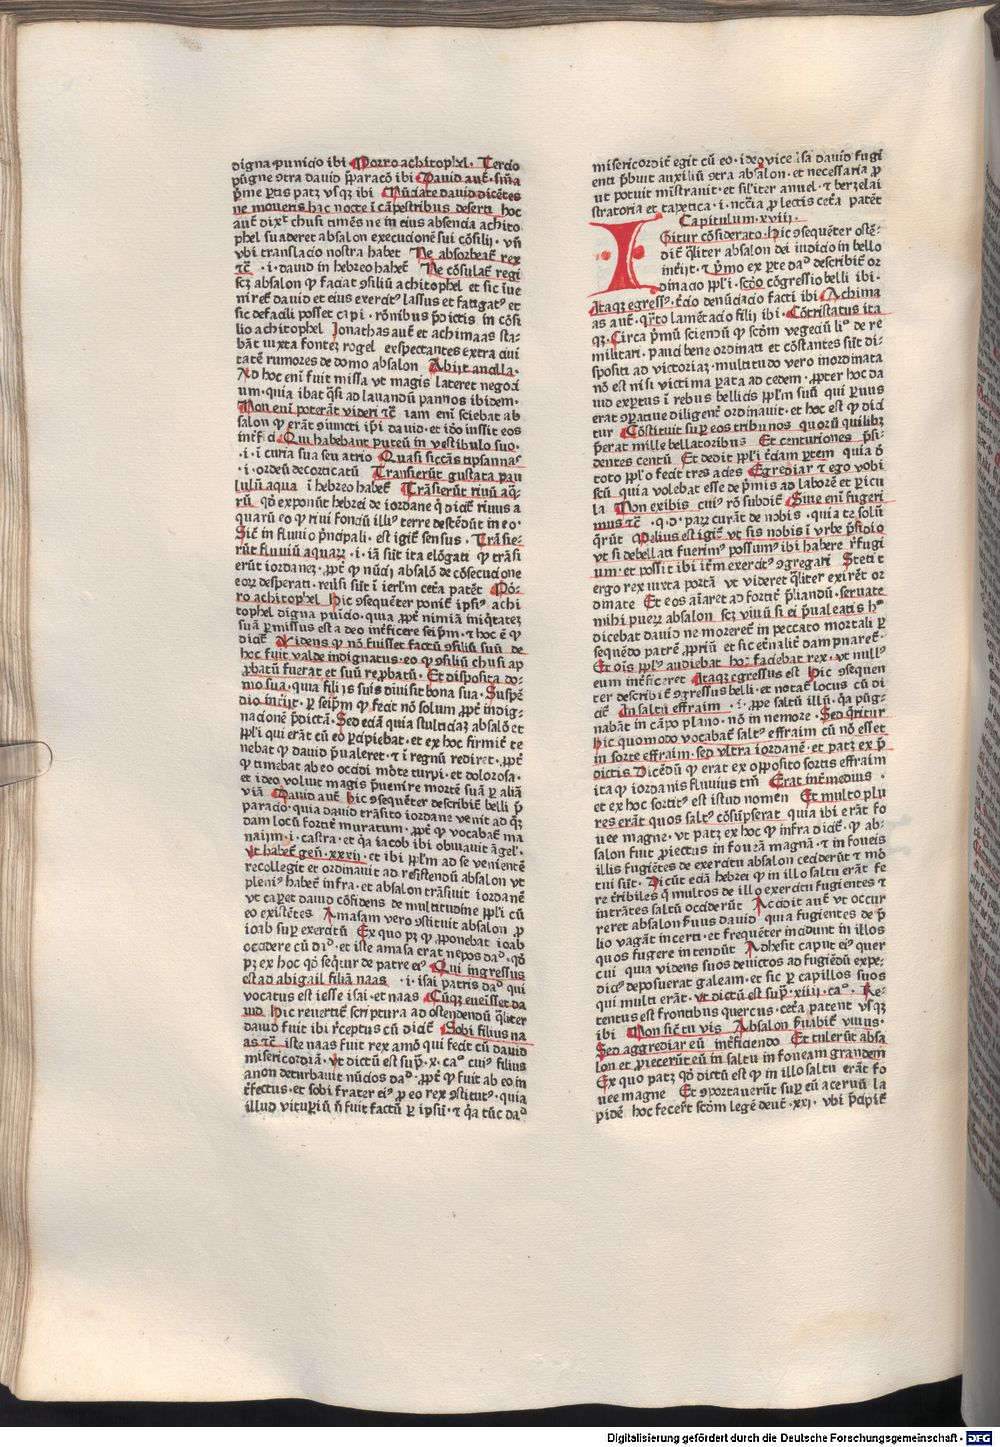 digna punicio ibi Porro achitophel. Tercio
pũgne ꝯtra dauid p̃paracõ ibi Dauid aut̃. Sm̃a
p̃me ꝑtis patꝫ vsqꝫ ibi Nũciate dauid dicẽtes
ne moueris hac nocte ĩ cãpestribus deserti hoc
aut̃ dixᵗ chusi timẽs ne in eius absencia achito
phel suaderet absalon execucionẽ sui cõsilij. vñ
vbi translacio nostra habet Ne absorbeat̃ rex
⁊c̃ .i. dauid in hebreo habet̃ Ne cõsulat̃ regi
scꝫ absalon ꝙ faciat ꝯsiliũ achitophel et sic ĩue
niret̃ dauid et eius exercitꝰ lassus et fatigatꝰ et
sic de facili posset capi. rõnibus p̃dictis in cõsi
lio achitophel Jonathas aut̃ et achimaas sta-
bãt iuxta fonteꝫ rogel exspectantes extra ciui
tatẽ rumores de domo absalon Abijt ancilla.
Ad hoc enĩ fuit missa vt magis lateret negoci
um. quia ibat q̃si ad lauandũ pannos ibidem.
Non enĩ poterãt videri ⁊c̃ iam enĩ sciebat ab
salon ꝙ erãt ꝯiuncti ip̃i dauid. et iđo iussit eos
int̃fici Qui habebant puteũ in vestibulo suo.
.i. ĩ curia sua seu atrio Quasi siccãs tipsannas
.i. ordeũ decorticatũ Transierũt gustata pau
lulũ aqua ĩ hebreo habet̃ Trãsierũt riuũ aq̃-
rũ. qđ exponũt hebrei de iordane q̃ dicit̃ riuus a
quarũ eo ꝙ riui fonciũ illiꝰ terre descẽdũt in eo.
Sicᵗ in fluuio p̃ncipali. est igit̃ sensus. Trãsie-
rũt fluuiũ aquaꝝ .i. iã sũt ita elõgati ꝙ trãsi
erũt iordaneꝫ. ꝓpt̃ ꝙ nũcij absalõ de cõsecucione
eoꝝ desperati. reũsi sũt ĩ ierlm̃ cet̃a patẽt Por-
ro achitophel Hic ꝯsequẽter ponit̃ ipsiꝰ achi
tophel digna pũicio. quia ꝓpt̃ nimiã iniq̃tateꝫ
suã ꝑmissus est a deo int̃ficere seip̃m. ⁊ hoc ẽ ꝙ
dicit̃ Uidens ꝙ nõ fuisset factũ ꝯsiliũ suũ de
hoc fuit valde indignatus. eo ꝙ ꝯsiliũ chusi ap
ꝓbatũ fuerat et suũ reꝓbatũ. Et disposita do-
mo sua. quia filijs suis diuisit bona sua. Suspẽ
dio int̃ijt. ꝑ seip̃m ꝙ fecit nõ solum ꝓpt̃ indig-
nacionẽ p̃dictã. Sed eciã quia stulticiaꝫ absalõ et
pp̃li qui erãt cũ eo ꝑcipiebat. et ex hoc firmit̃ te
nebat ꝙ dauid p̃ualeret. ⁊ ĩ regnũ rediret. ꝓpt̃
ꝙ timebat ab eo occidi morte turpi. et dolorosa.
et ideo voluit magis p̃uenire mortẽ suã ꝑ aliã
viã Dauid aut̃ Hic ꝯsequẽter describit̃ belli p̃
paracio. quia dauid trãsito iordane venit ad q̃ꝫ
dam locũ fortit̃ muratum. ꝓpt̃ ꝙ vocabat̃ ma
naim .i. castra. et q̃a iacob ibi obuiauit ãgelꝰ.
vt habet̃ gen̄. xxxij. et ibi pp̃lm ad se venientẽ
recollegit et ordinauit ad resistendũ absalon vt
pleniꝰ habet̃ infra. et absalon trãsiuit iordanẽ
vt caꝑet dauid cõfidens de multitudine pp̃li cũ
eo existẽtes Amasam vero ꝯstituit absalon ꝓ
ioab suꝑ exercitũ Ex quo pꝫ ꝙ ꝓponebat ioab
occidere cũ diᵈ. et iste amasa erat nepos daᵈ. qđ
pꝫ ex hoc qđ seq̃tur de patre eiꝰ Qui ingressus
est ad abigail filiã naas .i. isai patris daᵈ qui
vocatus est iesse isai. et naas Cũqꝫ euẽisset da
uid. Hic reuertit̃ scriptura ad ostendendũ q̃liter
dauid fuit ibi rec̃eptus cũ dicit̃ Sobi filius na
as ⁊c̃ iste naas fuit rex amõ qui fecit cũ dauid
misericordiã. vt dictũ est sup̃. x. caᵒ cuiꝰ filius
anon deturbauit nũcios daᵈ. ꝓpt̃ ꝙ fuit ab eo in
t̃fectus. et sobi frater eiꝰ ꝓ eo rex ꝯstitutꝰ. quia
illud vituꝑiũ ñ fuit factũ ꝑ ipsũ. ⁊ q̃a tũc daᵈ
misericordit̃ egit cũ eo. ideo vice ĩsa dauid fugi
enti p̃buit auxiliũ ꝯtra absalon. et necessaria ꝓ
ut potuit mĩstrauit. et sil̃iter amiel. ⁊ berzelai
stratoria et tapetica .i. ncc̃ia ꝓ lectis cet̃a patẽt
Capitulum. xviij.
IGitur cõsiderato. Hic ꝯsequẽter ostẽ-
dit̃ q̃liter absalon dei iudicio in bello
int̃ijt. ⁊ p̃mo ex ꝑte daᵈ describit̃ or
dinacio pp̃li. scđo cõgressio belli ibi.
Itaqꝫ egressꝰ. t̃cio denũciacio facti ibi Achima
as aut̃. q̃rto lamẽtacio filij ibi. Cõtristatus ita
qꝫ. Circa p̃mũ sciendũ ꝙ scđm vegeciũ liᵒ de re
militari. pauci bene ordinati et cõstantes sũt di-
spositi ad victoriaꝫ. multitudo vero inordinata
nõ est nisi victima parata ad cedem. ꝓpter hoc da
uid exꝑtus ĩ rebus bellicis pp̃lm suũ qui ꝑuus
erat ꝯparatiue diligent̃ ordinauit. et hoc est ꝙ dici
tur Cõstituit suꝑ eos tribunos quorũ quilibꝫ
p̃erat mille bellatoribus Et centuriones p̃si-
dentes centũ Et dedit pp̃li t̃ciam ꝑtem quia đ
toto pp̃lo fecit tres acies Egrediar ⁊ ego vobi
scũ quia volebat esse de p̃mis ad laborẽ et ꝑicu
la Non exibis cuiꝰ rõ subdit̃ Siue enĩ fugeri
mus ⁊c̃ .q.d. parꝫ curãt de nobis. quia te solũ
q̃rũt Melius est igit̃ vt sis nobis ĩ vrbe p̃sidio
vt si debellati fuerimꝰ possumꝰ ibi habere r̃fugi
um. et possit ibi it̃m exercitꝰ ꝯgregari Stetit
ergo rex iuxta portã vt videret q̃liter exirẽt or
dinate Et eos aĩaret ad fortit̃ p̃liandũ. seruate
mihi pueꝝ absalon scꝫ viuũ si ei p̃ualeatis hᵒ
dicebat dauid ne moreret̃ in peccato mortali ꝑ
sequẽdo patrẽ ꝓpriũ et sic et̃naliter dampnaret̃.
Et oĩs pp̃lꝰ audiebat hoc faciebat rex. vt nullꝰ
eum int̃ficeret Itaqꝫ egressus est Hic ꝯsequen
ter describit̃ ꝯgressus belli. et notat̃ locus cũ di
cit̃ In saltu effraim .i. ꝓpe saltũ illũ. q̃a pũg-
nabãt in cãpo plano. nõ in nemore. Sed q̃ritur
hic quomodo vocabat̃ saltꝰ effraim cũ nõ esset
in sorte effraim. sed vltra iordanẽ. et patꝫ ex p̃
dictis Dicẽdũ ꝙ erat ex opposito sortis effraim
ita ꝙ iordanis fluuius tm̃ Erat int̃medius .
et ex hoc sortitꝰ est istud nomen Et multo plu
res erãt quos saltꝰ cõsũpserat quia ibi erãt fo
uee magne. vt patꝫ ex hoc ꝙ infra dicit̃. ꝙ ab-
salon fuit ꝓiectus in foueã magnã. ⁊ in foueis
illis fugiẽtes de exercitu absalon ceciderũt ⁊ mõ
tui sũt. Dicũt eciã hebrei ꝙ in illo saltu erãt fe
re t̃ribiles q̃ multos de illo exercitu fugientes ⁊
intrãtes saltũ occiderũt Accidit aut̃ vt occur
reret absalon s̃uus dauid quia fugientes de p̃
lio vagãt incerti. et frequẽter incidunt in illos
quos fugere intendũt Adhesit caput eiꝰ quer
cui quia videns suos deuictos ad fugiẽdũ expe-
diciꝰ deposuerat galeam. et sic ꝑ capillos suos
qui multi erãt. vt dictũ est sup̃. xiiij. caᵒ. Re-
tentus est frontibus quercus. cet̃a patent vsqꝫ
ibi Non sic̃t tu vis Absalon s̃uabit̃ viuus.
Sed aggrediar eũ int̃ficiendo Et tulerũt absa
lon et ꝓiecerũt eũ in saltu in foueam grandem
Ex quo patꝫ qđ dictũ est ꝙ in illo saltu erãt fo
uee magne Et ꝯportauerũt suꝑ eũ aceruũ la
pidẽ hoc fecer̃t scđm legẽ deut̃. xxi. vbi p̃cipit̃
Digitalisierung gefördert durch die Deutsche Forschungsgemeinschaft - DFG